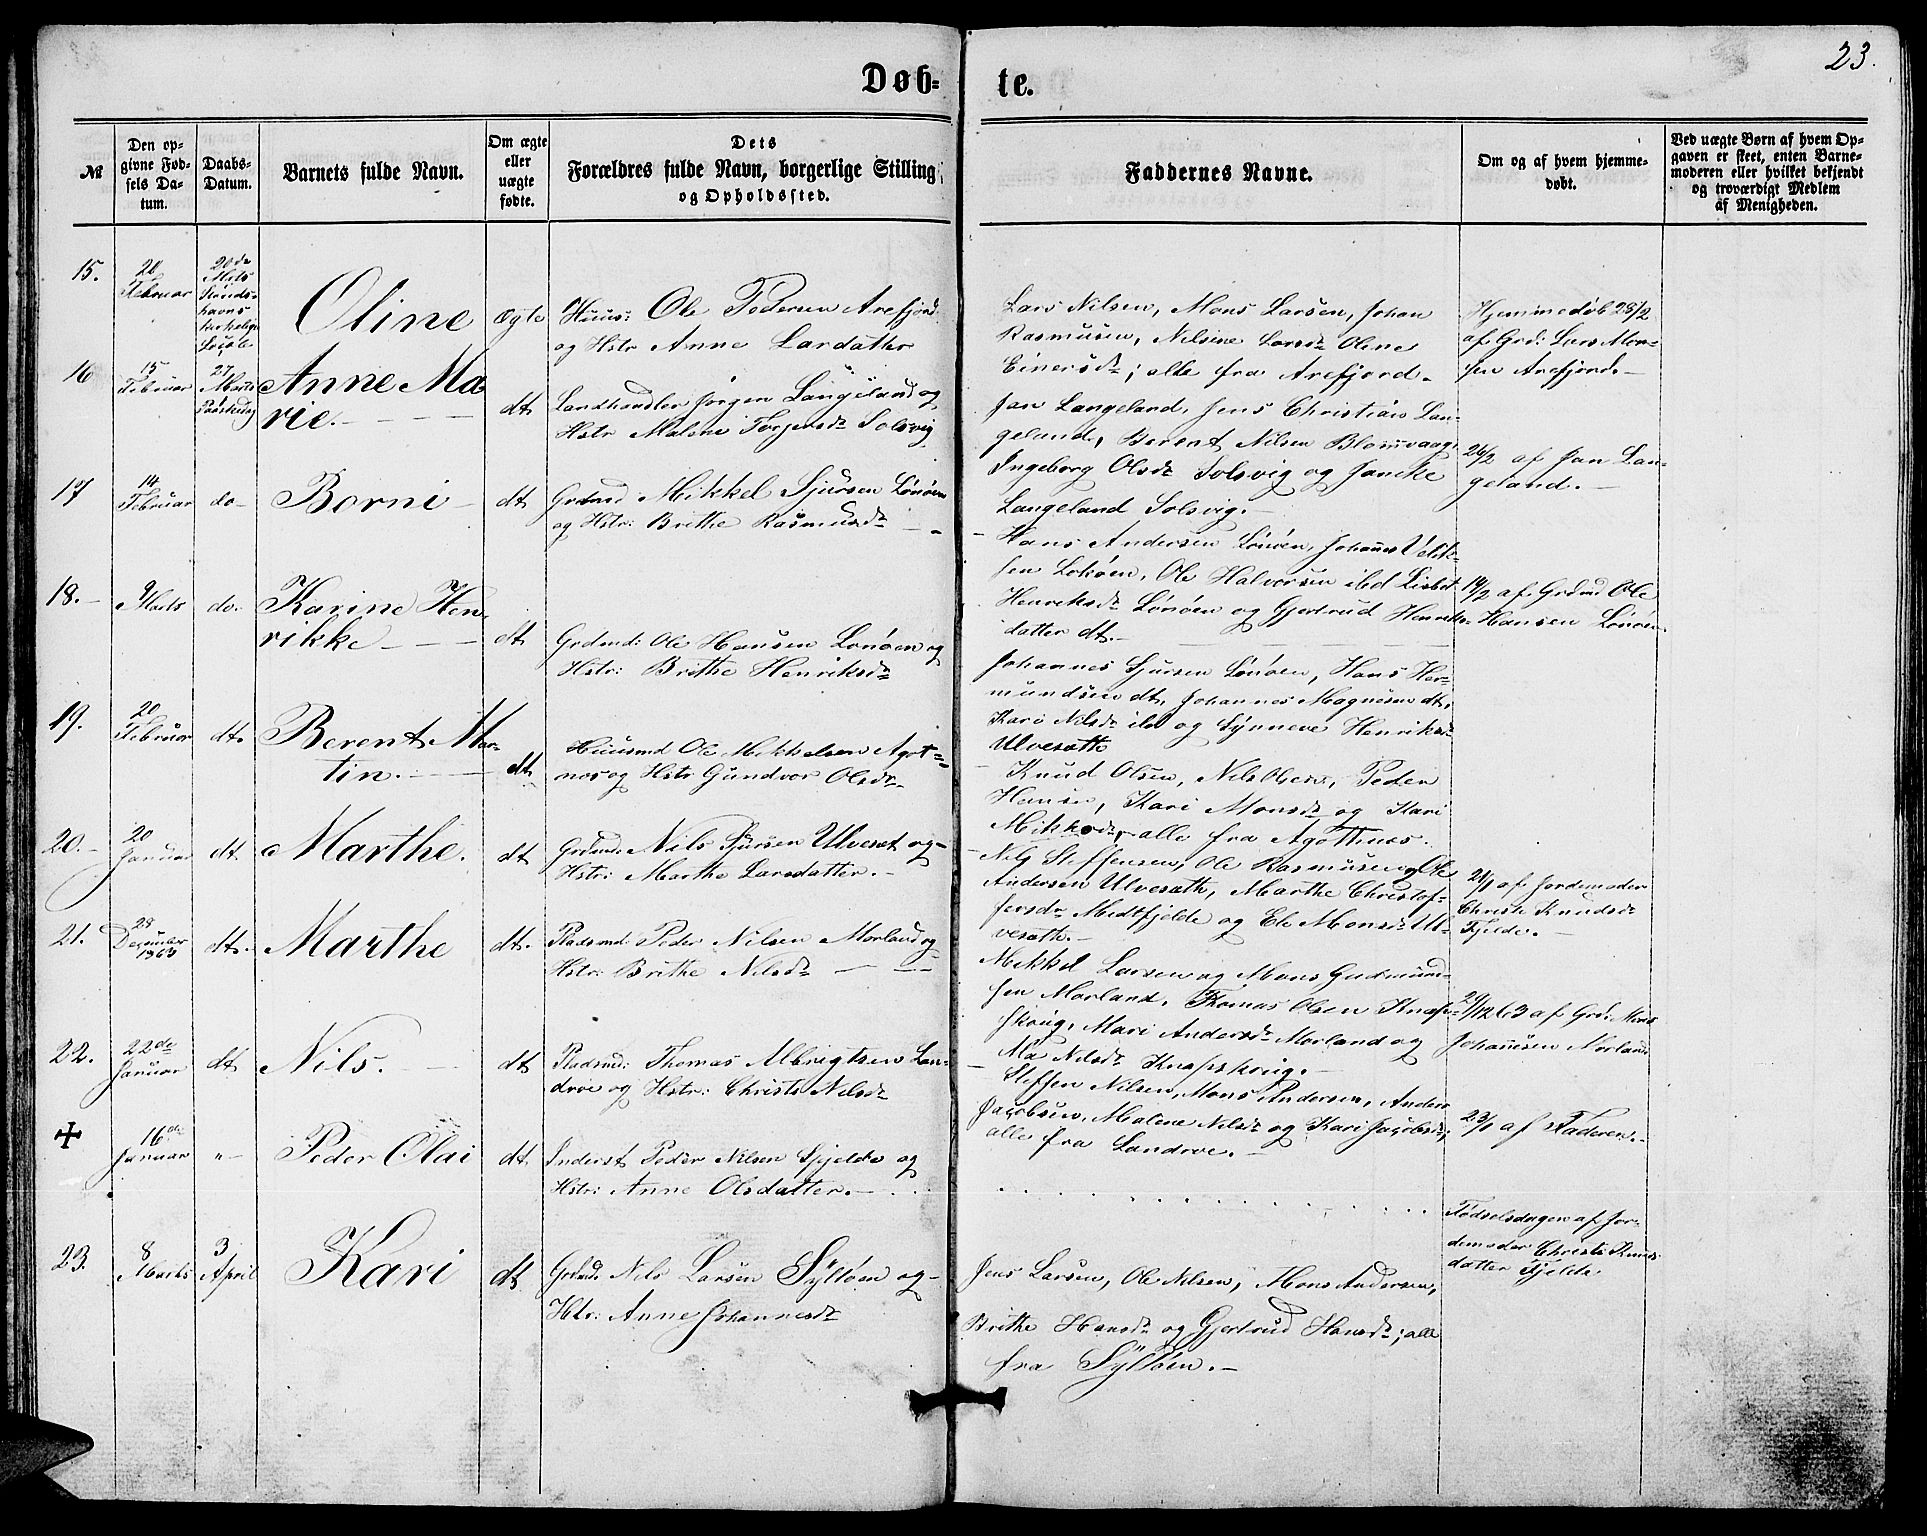 23.
Døb-
te.
№
Den op-
givne Fød-
sels Da-
tum.
Daabs-
Datum.
Barnets fulde Navn.
Om ægte
eller
uægte
fødte.
Dets
Forældres fulde Navn, borgerlige Stilling
og Opholdssted.
Faddernes Navne.
Om og af hvem hjemme-
døbt.
Ved uægte Børn af hvem Op-
gaven er skeet, enten Barne-
moderen eller hvilket bekjendt
og troværdigt Medlem
af Menigheden.
15.
Februar
20de
Marts
Oline
ægte
Huus: Ole Pedersen Arefjord
og Hstr Anne Larsdatter
Lars Nilsen, Mons Larsen, Johan
Rasmusen, Nilsine Larsdr Oline
Einersdr; alle fra Arefjord.
Hjemmedøb 28/2
af Grd: Lars Mon-
sen Arefjord.—
16
15
Februar
27
Marts
Paaskedag
Anne Ma
rie.
dt
Landhandler Jørgen Langeland og
Hstr Malene Torgersdr Solsvig
Jan Langeland, Jens Christian Lan-
geland, Berent Nilsen Blomvaag,
Ingeborg Olsdr Solsvig og Jancke
Langeland Solsvig.—
26/2 af Jan Lan-
geland.—
17
14
Februar
do
Borni
dt
Grdmd Mikkel Sjursen Lønøen
og Hstr: Brithe Rasmusdr
Hans Andersen Lønøen, Johannes
sen Lokøen, Ole Halvorsen ibd Lisbet
Henriksdr Lønøen og Gjertrud Henriks-
datter dt.—
14/2 af Grdmd Ole
Hansen Lønøen
18.—
9
Marts
do.
Karine Hen
rikke
dt
Grdmd: Ole Hansen Lonøen og
Hstr: Brithe Henriksdr
Johannes Sjursen Lønøen, Hans Her-
mundsen dt, Johannes Magnesen dt,
Kari Nilsdr ib og Synneve Henriksdr
Ulvesæth
19.
20
Februar
dt.
Berent Mar-
tin.
dt
Huusmd Ole Mikkelsen Agot-
nes og Hstr Gundvor Olsdr
Knud Olsen, Nils Olsen, Peder
Hansen, Kari Monsdr og Kari
Mikkelsdr, alle fra Agotnes.
20.—
20
Januar
dt.
Marthe.
dt
Grdmd: Nils Sjursen Ulveset og
Hstr: Marthe Larsdatter.—
Nils Steffensen, Ole Rasmusen og Ole
Andersen Ulvesæth, Marthe Christof-
fersdr Midtfjelde og Ele Monsdr Ul-
vesæth.—
21/1 af Jordemoder
Christi Knudsdr
Fjelde.—
21.
28
December
1863
dt.
Marthe
dt.
Pladsmd: Peder Nilsen Morland og
Hstr: Brithe Nilsdr
Mikkel Larsen og Mons Gudmund-
sen Morland, Thomas Olsen Knap-
skoug, Mari Andersdr Morland og
Ma Nilsdr Knapskoug.—
29/12 63 af Grd: Mons
Johannesen Morland
22.
22de
Januar
dt
Nils.
dt
Pladsmd: Thomas Albrigtsen Lan-
droe og Hstr: Christi Nilsdr
Steffen Nilsen, Mons Andersen, Anders
Jacobsen, Malene Nilsdr og Kari Jacobsdr;
alle fra Landroe.—
23/1 af Faderen.—
✝
16de
Januar
"
Peder Olai
dt.
Inderst Peder Nilsen Fjelde og
Hstr: Anne Olsdatter.—
Fødselsdagen af Jor-
demoder Christi Knuds
datter Fjelde
23.
8
Marts
3
April
Kari
dt
Grdmd. Nils Larsen Syltøen og
Hstr: Anne Johannesdr
Jens Larsen, Ole Nilsen, Mons Andersen,
Brithe Hansdr og Gjertrud Hansdr; alle
fra Syltøen.—